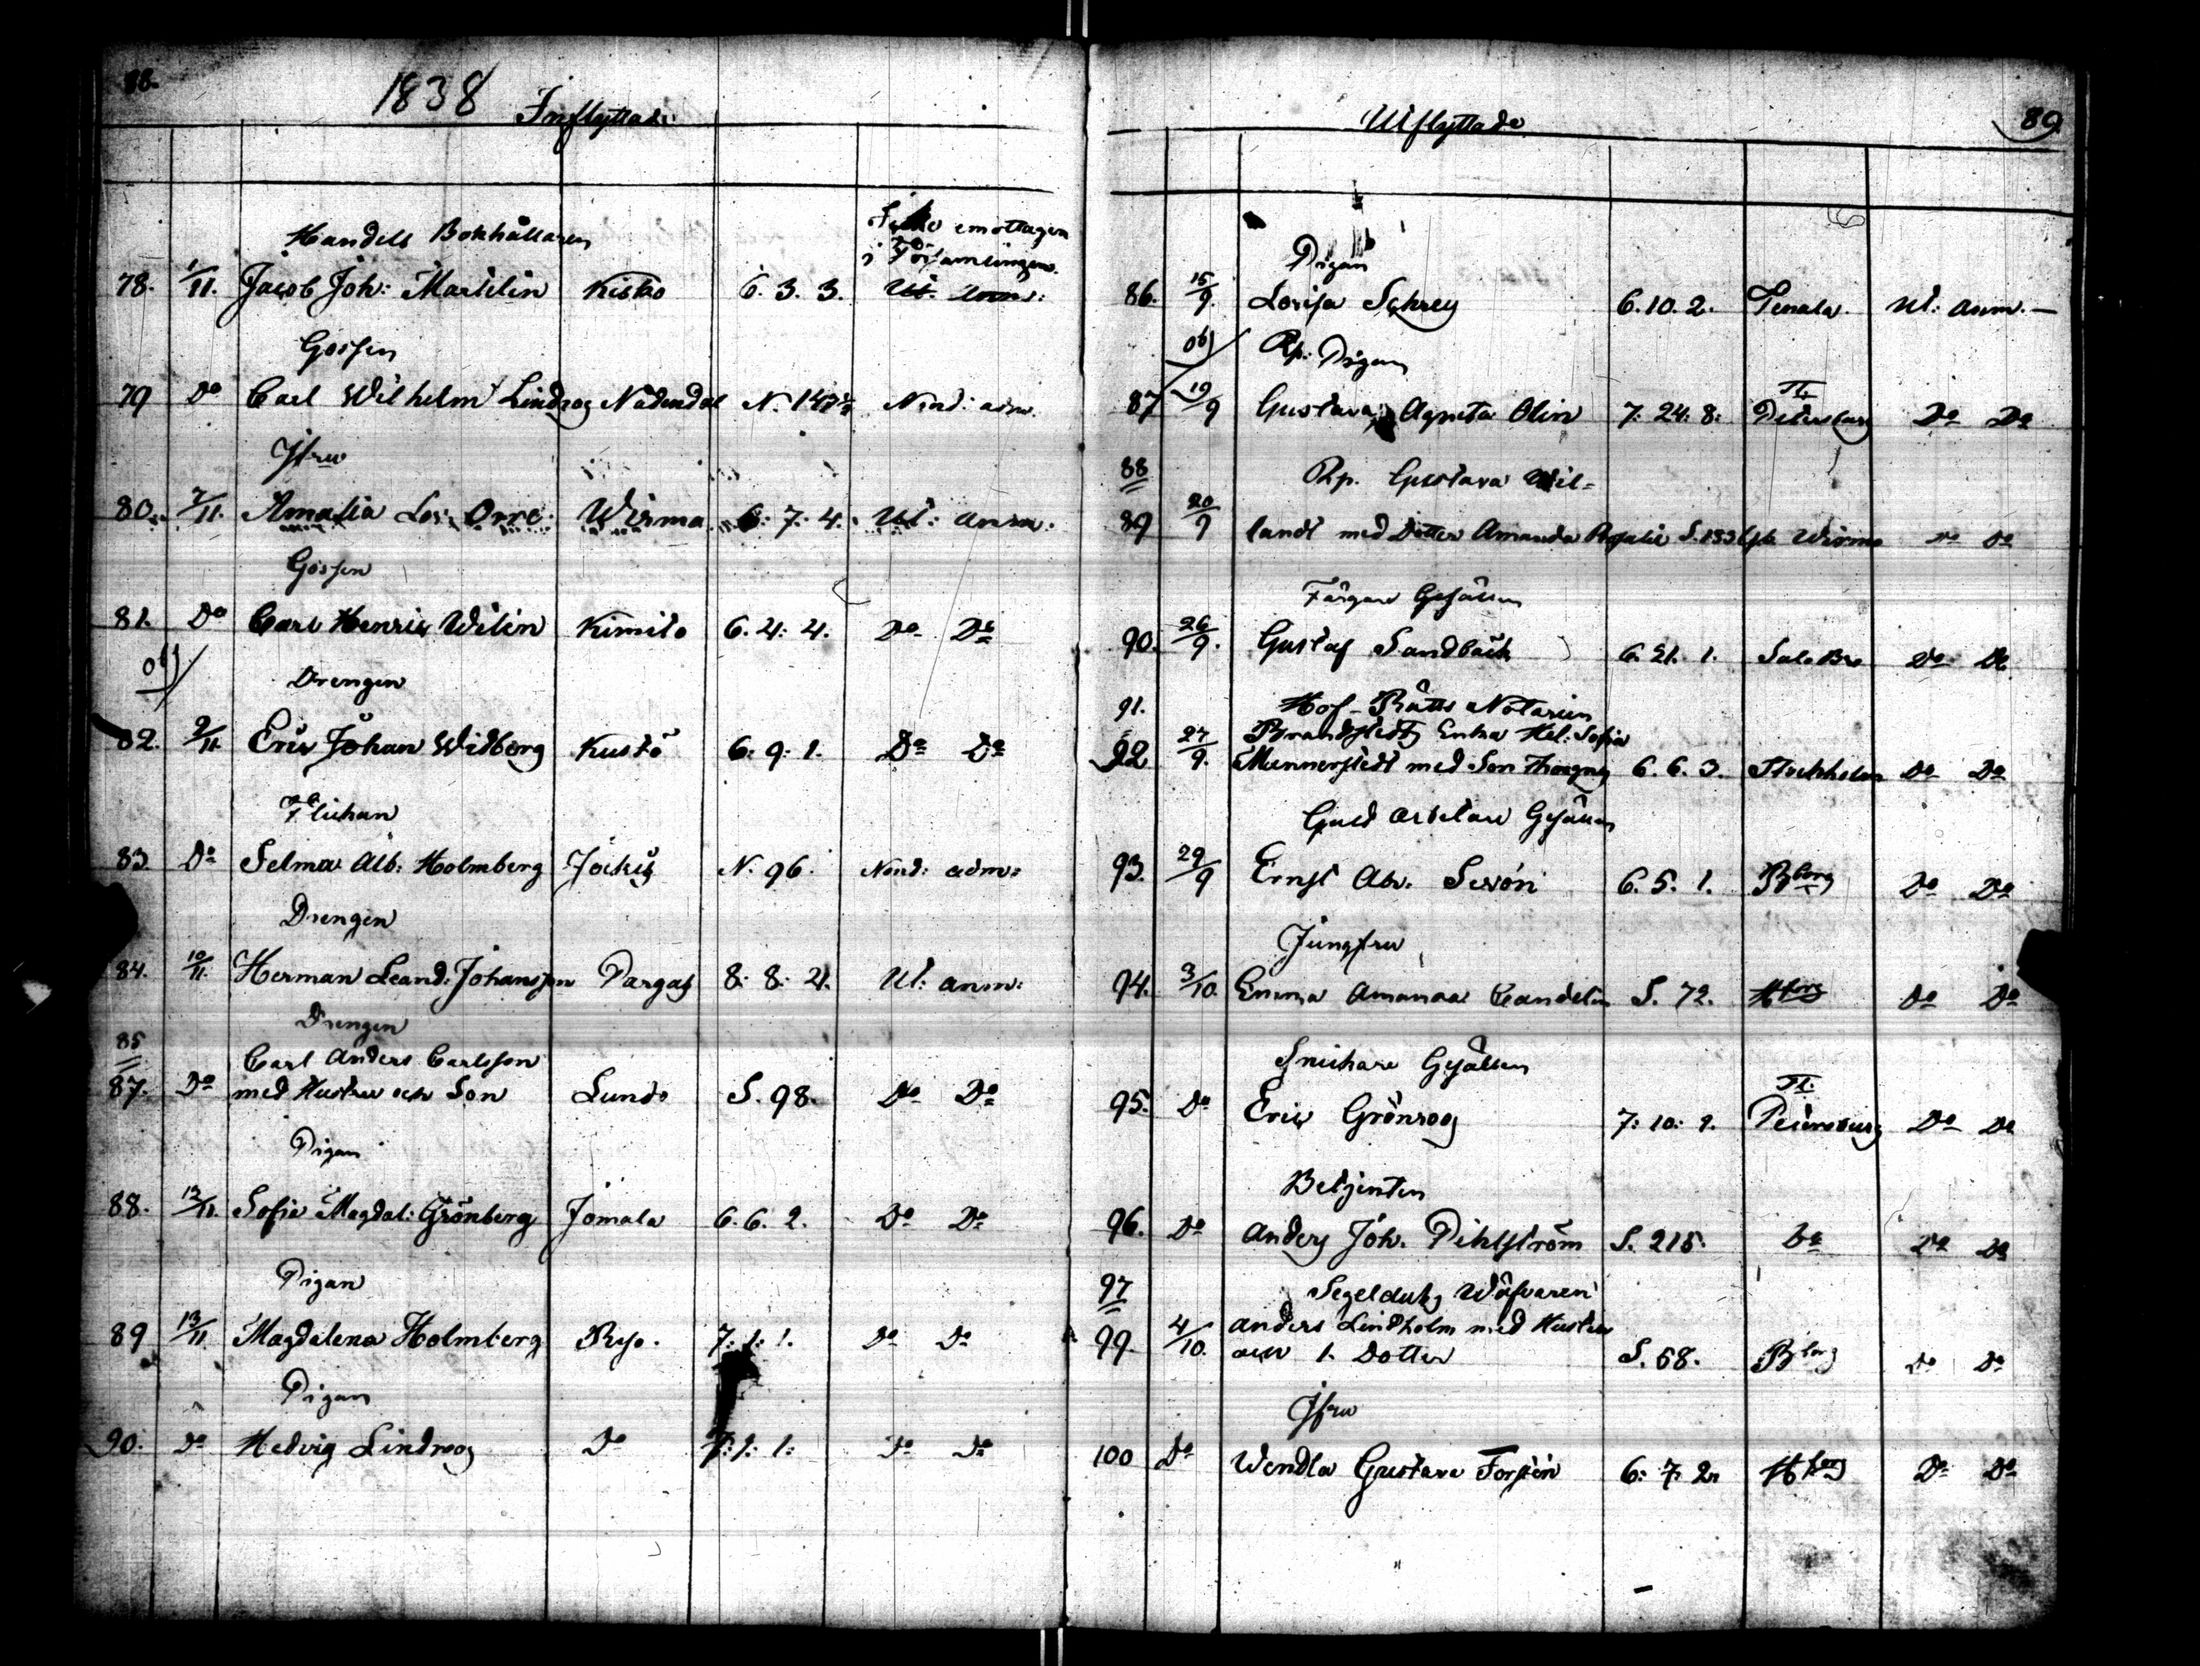 88.
1838 Inflyttade
Handels Bokhållaren
Icke emottagen
i Församlingen.
78. 1/11. Jacob Joh: Martelin Kisko 6. 3. 3. Ut. anm:
Gossen
79 Do Carl Wilhelm Lindrog Nådendal N. 147½ Nend: adm.
Jfru
80. 7/11. Amalia Lov: Orre Wirmo 6: 7: 4. Ut: anm:
Gossen
81. Do Carl Henric Wilin Kimito 6. 4: 4. Do Do
obs
Drengen
82. 9/11 Eric Johan Widberg Kustö 6: 9: 1. Do Do
Flickan
83. Do Selma Alb: Holmberg Jockis N. 96. Nend: adm:
Drengen
84. 10/11. Herman Leand: Johansson Pargas 8: 8: 4. Ut: anm:
Drengen
85 Carl Anders Carlsson
87. Do med Hustru och Son Lundo S. 98. Do Do
Pigan
88. 12/11. Sofia Magdal: Grönberg Jomala 6. 6. 2. Do Do
Pigan
89 13/11 Magdalena Holmberg Rejo. 7: 1: 1. Do Do
Pigan
90. Do Hedvig Lindroog Do 7: 1: 1: Do Do
Utflyttade 89
Pigan
86. 15/9. Lovisa Schrey 6. 10. 2. Tenala. Ut: anm. —
obs Rp: Pigan
87 19/9 Gustava Agneta Olin 7: 24: 8: St. Petersburg Do Do
88 Rp. Gustava Wil-
89 20/9 landt med Dotter Amanda Rosalie Wirmo Do Do
Färgare Gesällen
90. 26/9. Gustaf Sandbäck 6. 21. 1. Salo Bro Do Do
91. Hof-Rätts Notarien
Brandstedts Enka Hel: Sofia
92 27/9. Munnerstedt med Son Thorgny 6. 6. 3. Stockholm Do Do
Guld Arbetare Gesällen
93. 29/9 Ernst Abr. Serón 6. 5. 1. Bborg Do Do
Jungfru
94. 3/10. Emma Amanda Candelin S. 72. Hfors Do Do
Snickare Gesällen
95. Do Eric Grönroos 7: 10: 1. St. Petersburg Do Do
Betjenten
96. Do Anders Joh. Pihlström S. 215. Do Do Do
97 Segelduks Wäfvaren
99 4/10. Anders Lindholm med Hustru
och 1. Dotter S. 68. Bborg Do Do
Jfru
100 Do Wendla Gustava Forstén 6: 7: 2. Hfors Do Do